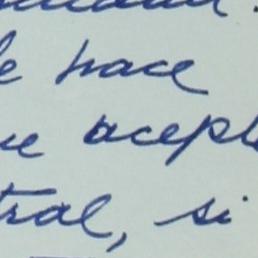 le hace
ue acept
tral, si